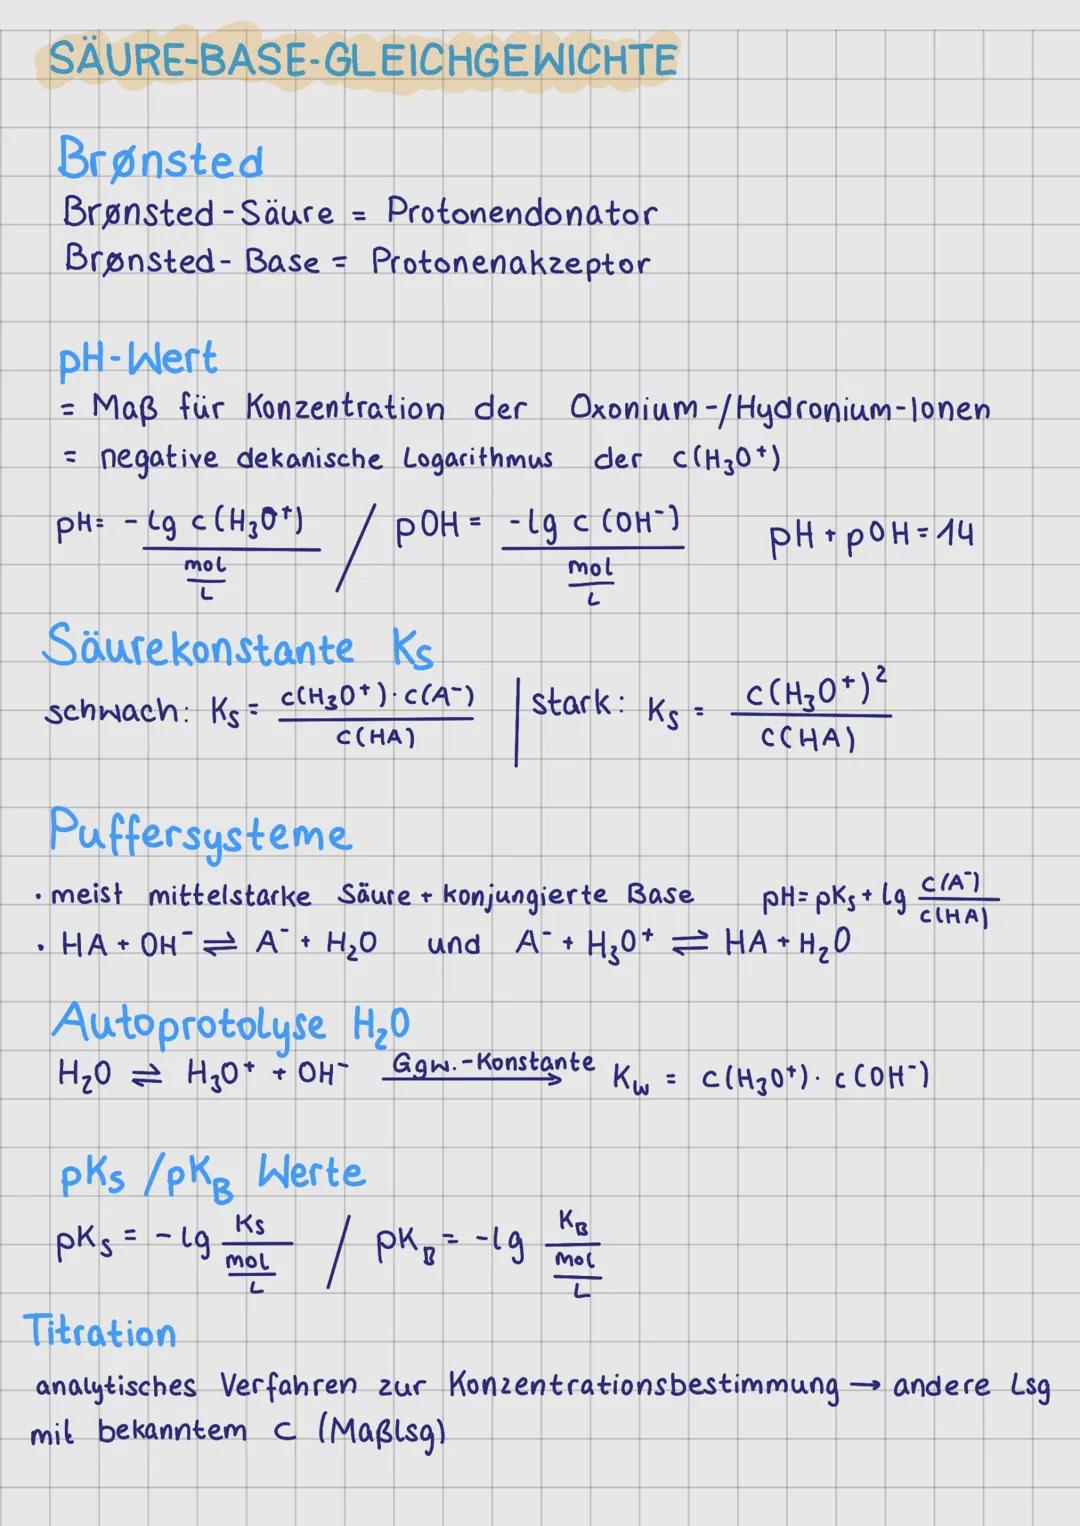 SÄURE-BASE-GLEICHGEWICHTE
Brønsted
Brønsted-Säure = Protonendonator
Brønsted-Base = Protonenakzeptor
pH-Wert
= Maß für Konzentration der Oxonium-/Hydronium-Ionen
= negative dekanische Logarithmus der c(H₃O⁺)
pH = -lg c(H₃O⁺) / mol/L / pOH = -lg c(OH⁻) / mol/L pH + pOH = 14
Säurekonstante Ks
schwach: Ks = c(H₃O⁺)·c(A⁻) / c(HA) | stark: Ks = c(H₃O⁺)² / c(HA)
Puffersysteme
· meist mittelstarke Säure + konjungierte Base pH = pKs + lg c(A⁻) / c(HA)
· HA + OH⁻ ⇌ A⁻ + H₂O und A⁻ + H₃O⁺ ⇌ HA + H₂O
Autoprotolyse H₂O
H₂O ⇌ H₃O⁺ + OH⁻ Ggw.-Konstante → Kw = c(H₃O⁺)·c(OH⁻)
pKs / pKB Werte
pKs = -lg Ks / mol/L / pKB = -lg KB / mol/L
Titration
analytisches Verfahren zur Konzentrationsbestimmung → andere Lsg
mit bekanntem c (Maßlsg)